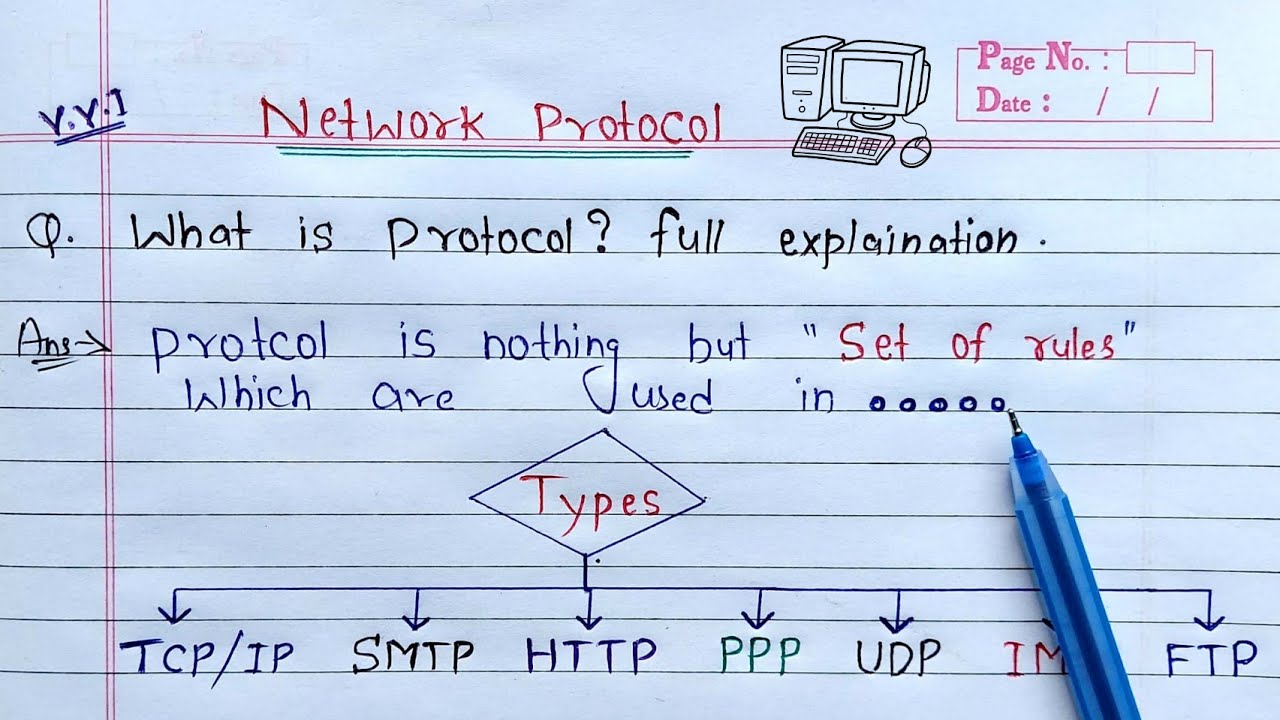 Page No. :
Date : / /
V.V.I
Network Protocol
Q. What is Protocol? full explaination.
Ans→ Protcol is nothing but "Set of rules"
Which are used in
Types
TCP/IP SMTP HTTP PPP UDP IM FTP